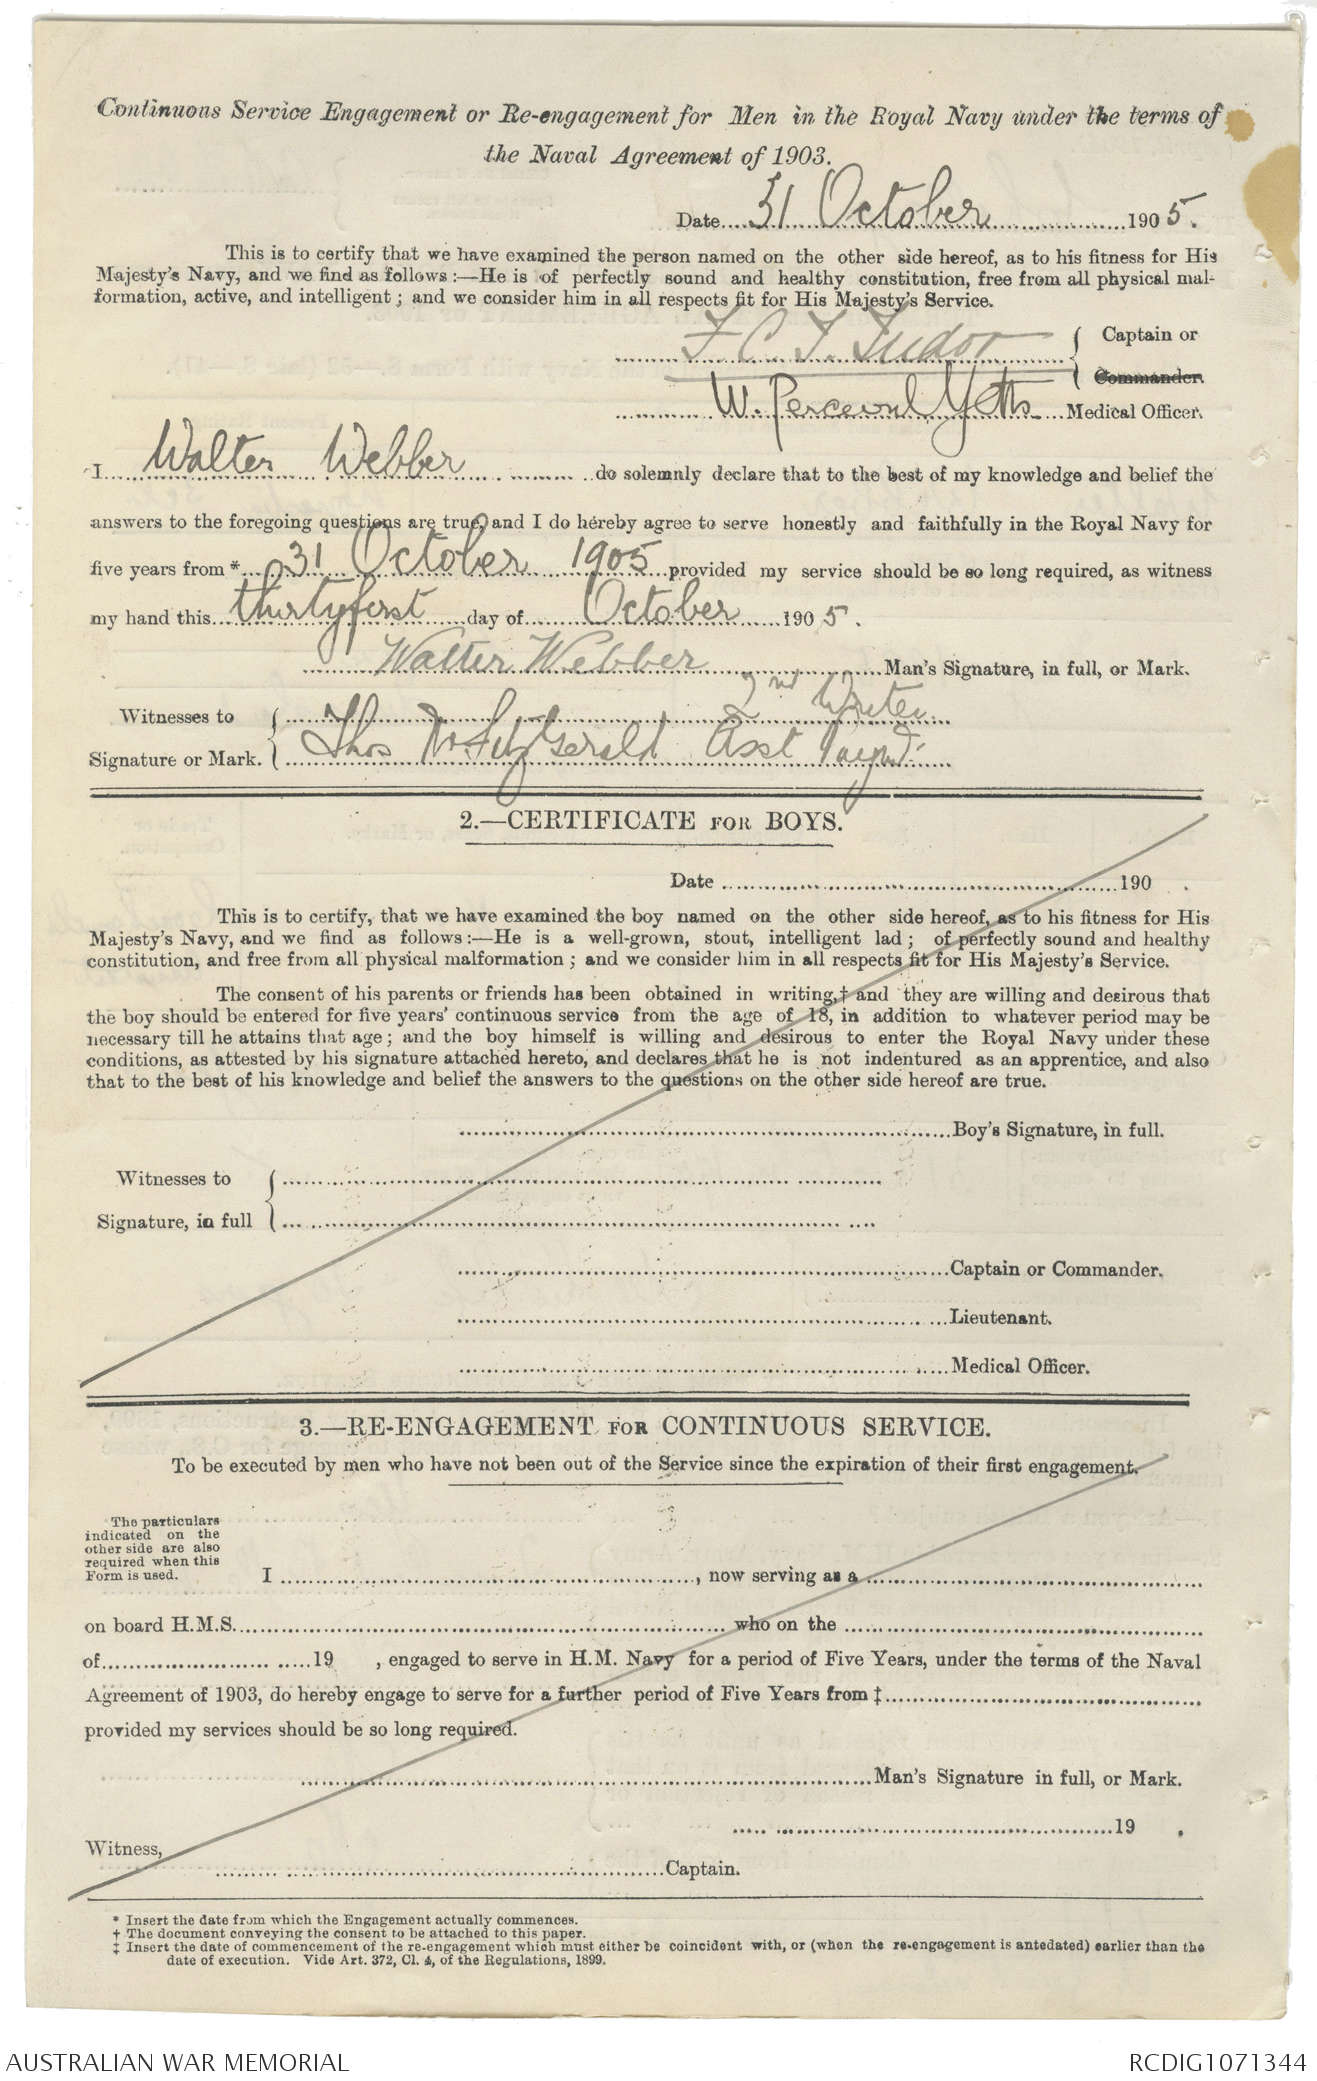 Continuous Service Engagement or Re-engagement for Men in the Royal Navy under the terms of
the Naval Agreement of 1903.
Date 31 October 1905.
This is to certify that we have examined the person named on the other side hereof, as to his fitness for His
Majesty's Navy, and we find as follows:—He is of perfectly sound and healthy constitution, free from all physical mal-
formation, active, and intelligent; and we consider him in all respects fit for His Majesty's Service.
F C T Tudor { Captain or
Commander.
W. Perceval Yetts Medical Officer.
I Walter Webber do solemnly declare that to the best of my knowledge and belief the
answers to the foregoing questions are true, and I do hereby agree to serve honestly and faithfully in the Royal Navy for
five years from * 31 October 1905 provided my service should be so long required, as witness
my hand this thirtyfirst day of October 1905.
Walter Webber Man's Signature, in full, or Mark.
Witnesses to { 2nd Writer
Signature or Mark. { Thos Fitzgerald Asst Paymr
2.—CERTIFICATE FOR BOYS.
Date 190 .
This is to certify, that we have examined the boy named on the other side hereof, as to his fitness for His
Majesty's Navy, and we find as follows:—He is a well-grown, stout, intelligent lad; of perfectly sound and healthy
constitution, and free from all physical malformation; and we consider him in all respects fit for His Majesty's Service.
The consent of his parents or friends has been obtained in writing,† and they are willing and desirous that
the boy should be entered for five years' continuous service from the age of 18, in addition to whatever period may be
necessary till he attains that age; and the boy himself is willing and desirous to enter the Royal Navy under these
conditions, as attested by his signature attached hereto, and declares that he is not indentured as an apprentice, and also
that to the best of his knowledge and belief the answers to the questions on the other side hereof are true.
Boy's Signature, in full.
Witnesses to
Signature, in full
Captain or Commander.
Lieutenant.
Medical Officer.
3.—RE-ENGAGEMENT FOR CONTINUOUS SERVICE.
To be executed by men who have not been out of the Service since the expiration of their first engagement.
The particulars
indicated on the
other side are also
required when this
Form is used.
I , now serving as a
on board H.M.S. who on the
of 19 , engaged to serve in H.M. Navy for a period of Five Years, under the terms of the Naval
Agreement of 1903, do hereby engage to serve for a further period of Five Years from ‡
provided my services should be so long required.
Man's Signature in full, or Mark.
19 .
Witness,
Captain.
* Insert the date from which the Engagement actually commences.
† The document conveying the consent to be attached to this paper.
‡ Insert the date of commencement of the re-engagement which must either be coincident with, or (when the re-engagement is antedated) earlier than the
date of execution. Vide Art. 372, Cl. 4, of the Regulations, 1899.
AUSTRALIAN WAR MEMORIAL
RCDIG1071344